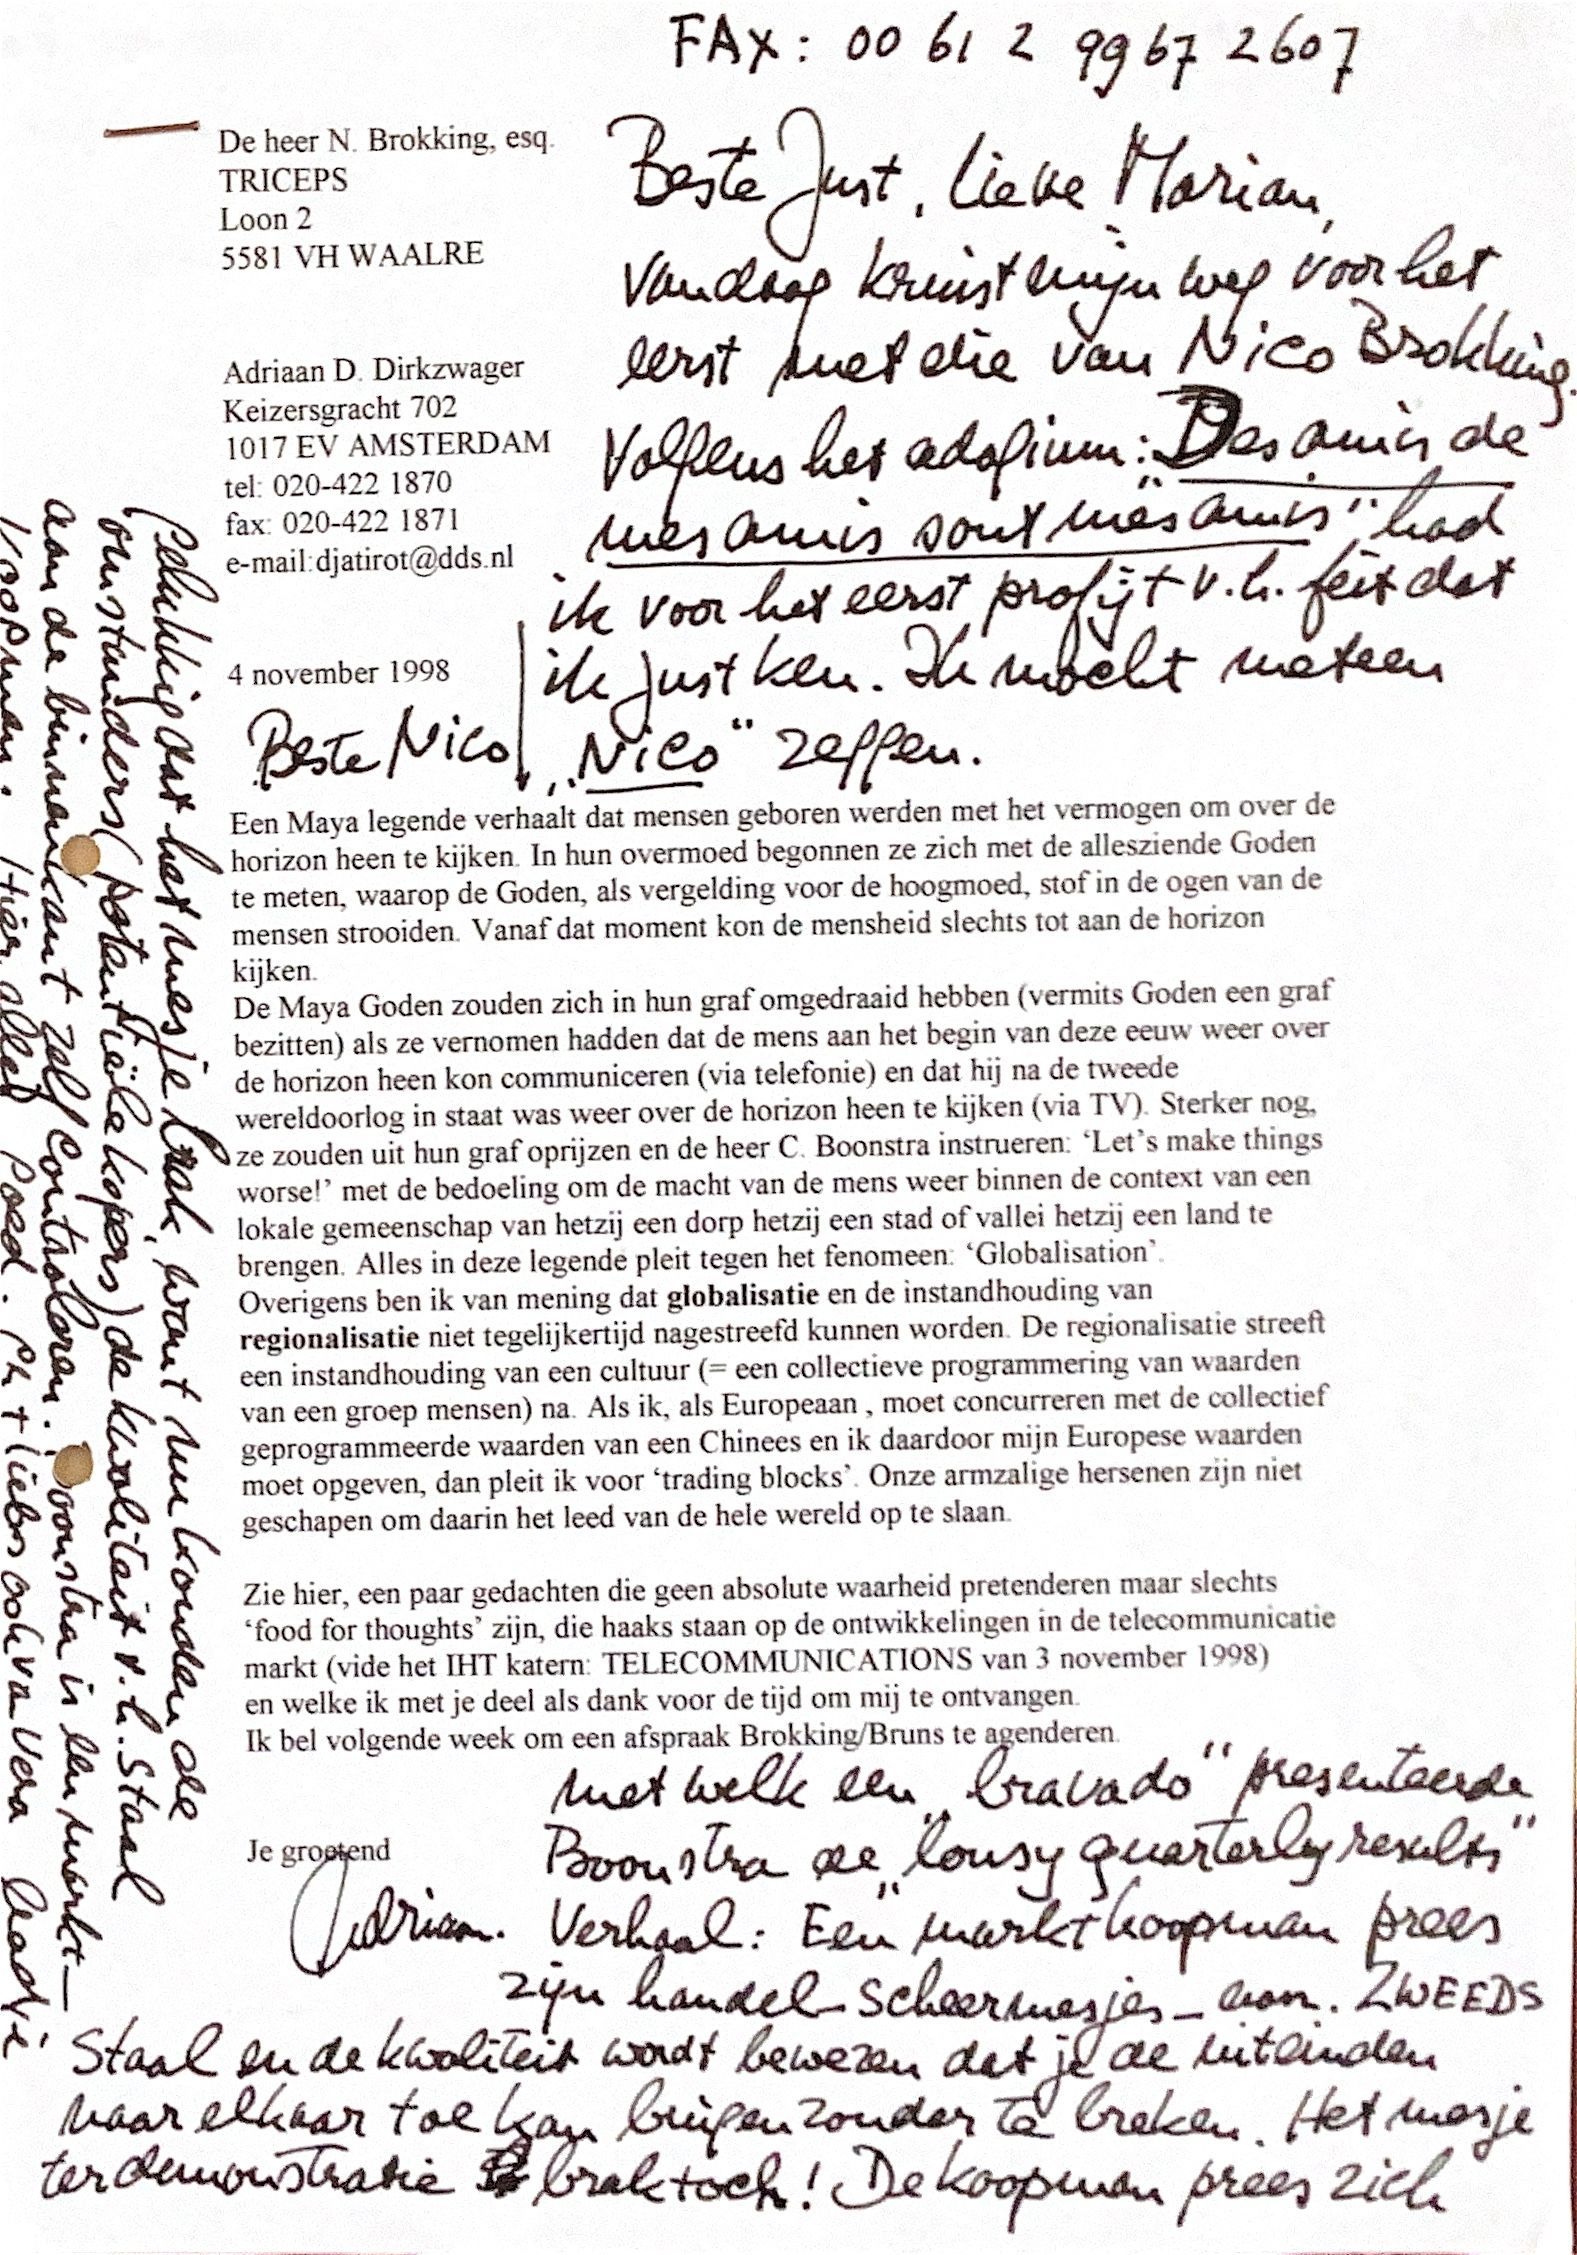 FAX: 00 61 2 9967 2607
De heer N. Brokking, esq.
TRICEPS
Loon 2
5581 VH WAALRE
Adriaan D. Dirkzwager
Keizersgracht 702
1017 EV AMSTERDAM
tel: 020-422 1870
fax: 020-422 1871
e-mail:djatirot@dds.nl
4 november 1998
Beste Just, lieve Marian,
Vandaag kruist mijn weg voor het
eerst met die van Nico Brokking.
Volgens het adagium: "Des amis de
mes amis sont mes amis" had
ik voor het eerst profijt v.h. feit dat
ik Just ken. Ik mocht meteen
"Nico" zeggen.
Beste Nico,
Een Maya legende verhaalt dat mensen geboren werden met het vermogen om over de
horizon heen te kijken. In hun overmoed begonnen ze zich met de allesziende Goden
te meten, waarop de Goden, als vergelding voor de hoogmoed, stof in de ogen van de
mensen strooiden. Vanaf dat moment kon de mensheid slechts tot aan de horizon
kijken.
De Maya Goden zouden zich in hun graf omgedraaid hebben (vermits Goden een graf
bezitten) als ze vernomen hadden dat de mens aan het begin van deze eeuw weer over
de horizon heen kon communiceren (via telefonie) en dat hij na de tweede
wereldoorlog in staat was weer over de horizon heen te kijken (via TV). Sterker nog,
ze zouden uit hun graf oprijzen en de heer C. Boonstra instrueren: ‘Let’s make things
worse!’ met de bedoeling om de macht van de mens weer binnen de context van een
lokale gemeenschap van hetzij een dorp hetzij een stad of vallei hetzij een land te
brengen. Alles in deze legende pleit tegen het fenomeen: ‘Globalisation’.
Overigens ben ik van mening dat globalisatie en de instandhouding van
regionalisatie niet tegelijkertijd nagestreefd kunnen worden. De regionalisatie streeft
een instandhouding van een cultuur (= een collectieve programmering van waarden
van een groep mensen) na. Als ik, als Europeaan , moet concurreren met de collectief
geprogrammeerde waarden van een Chinees en ik daardoor mijn Europese waarden
moet opgeven, dan pleit ik voor ‘trading blocks’. Onze armzalige hersenen zijn niet
geschapen om daarin het leed van de hele wereld op te slaan.
Zie hier, een paar gedachten die geen absolute waarheid pretenderen maar slechts
‘food for thoughts’ zijn, die haaks staan op de ontwikkelingen in de telecommunicatie
markt (vide het IHT katern: TELECOMMUNICATIONS van 3 november 1998)
en welke ik met je deel als dank voor de tijd om mij te ontvangen.
Ik bel volgende week om een afspraak Brokking/Bruns te agenderen.
Je groetend
Adriaan.
Met welk een "bravado" presenteerde
Boonstra de "lousy quarterly results"
Verhaal: Een "marktkoopman prees
zijn handel - scheermesjes - aan. ZWEEDS
Staal en de kwaliteit wordt bewezen dat je de uiteinden
naar elkaar toe kan buigen zonder te breken. Het mesje
ter demonstratie brak toch! De koopman prees zich
gelukkig dat het mesje brak, want nu konden de
omstanders (potentiële kopers) de kwaliteit v.h. Staal
aan de binnenkant zelf controleren. Boonstra is een markt-
koopman. Hier alles goed. Gr + liefs ook va Vera